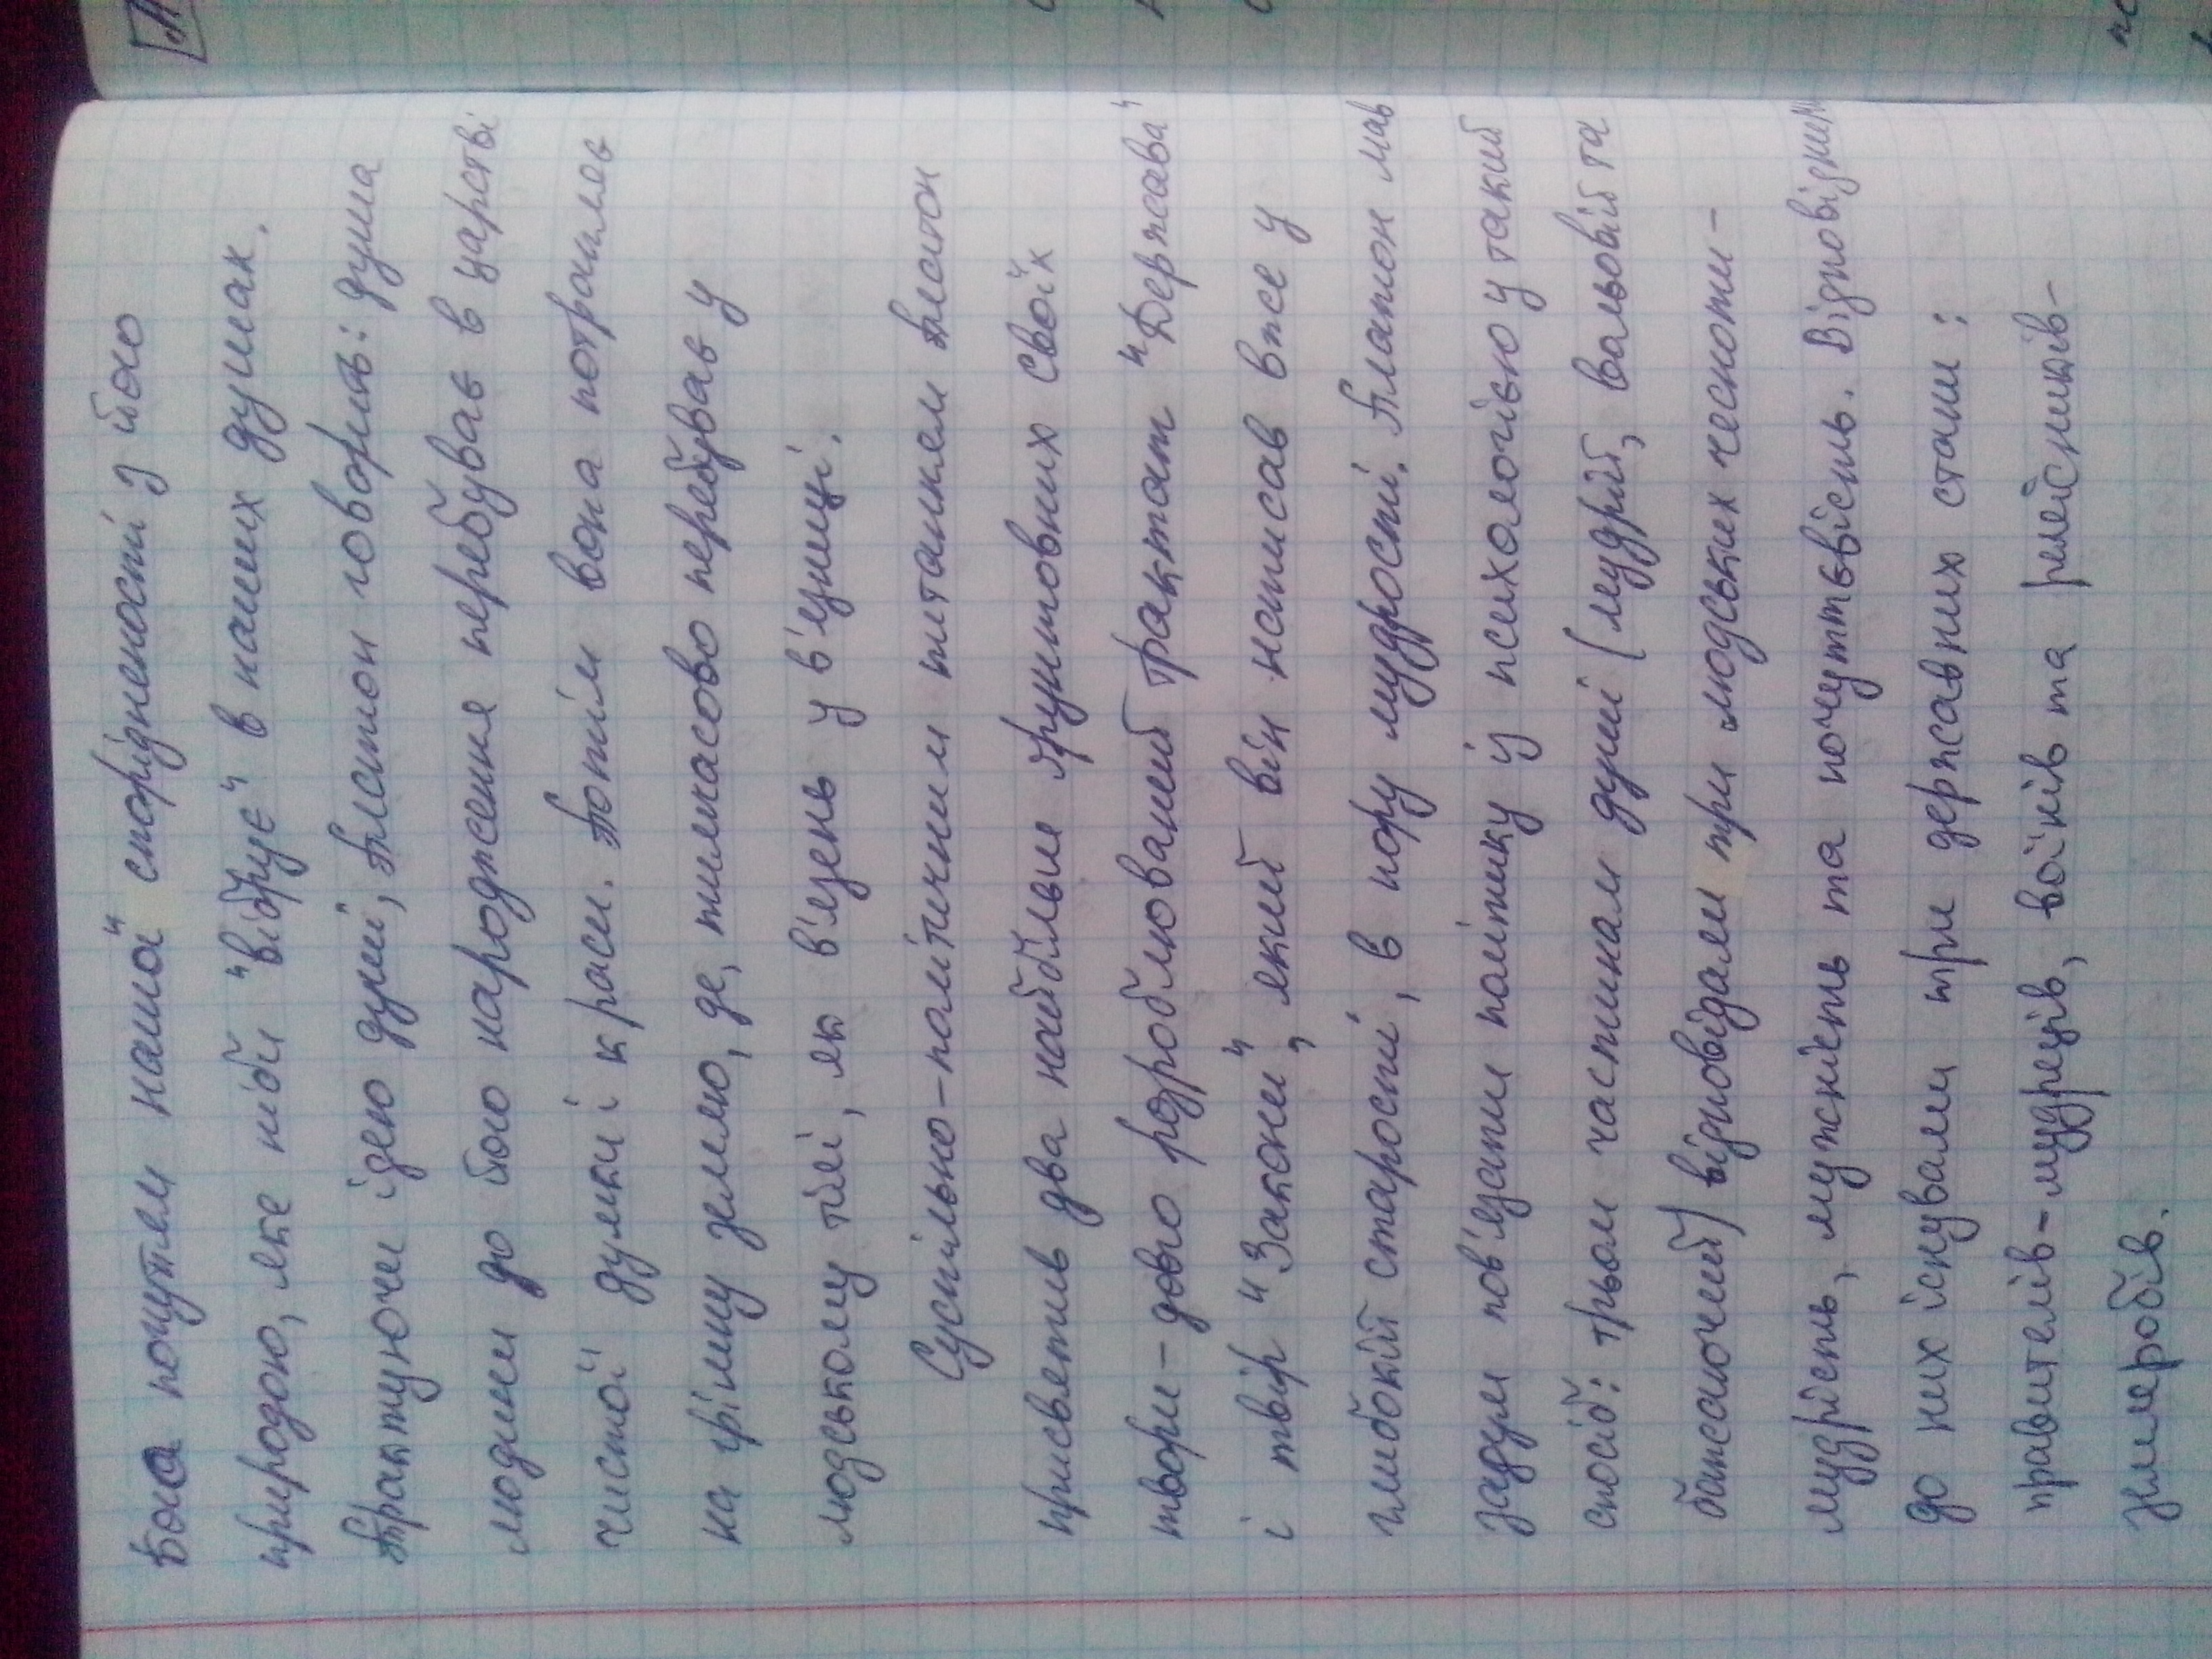 Бога почутям нашої спорідненості з його
природою, яке ніби "вібрує" в наших душах.
Трактуючи ідею душі, Платон говорить: душа
людини до його народження перебуває в царстві
чистої думки і краси. Потім вона потрапляє
на грішну землю, де, тимчасово перебуває у
людському тілі, як в'язень у в'язниці.
Суспільно-політичним питанням Платон
присвятив два найбільш ґрунтовних своїх
твори - довго розроблюваний трактат "Держава"
і твір "Закони", який він написав вже у
глибокій старості, в пору мудрості. Платон мав
задум пов'язати політику із психологією у такий
спосіб: трьом частинам душі (мудрій, вольовій та
бажаючий) відповідали три людських чесноти -
мудрість, мужність та почуттєвість. Відповідними
до них існували три державних стани:
правителів-мудреців, воїнів та ремісників-
землеробів.